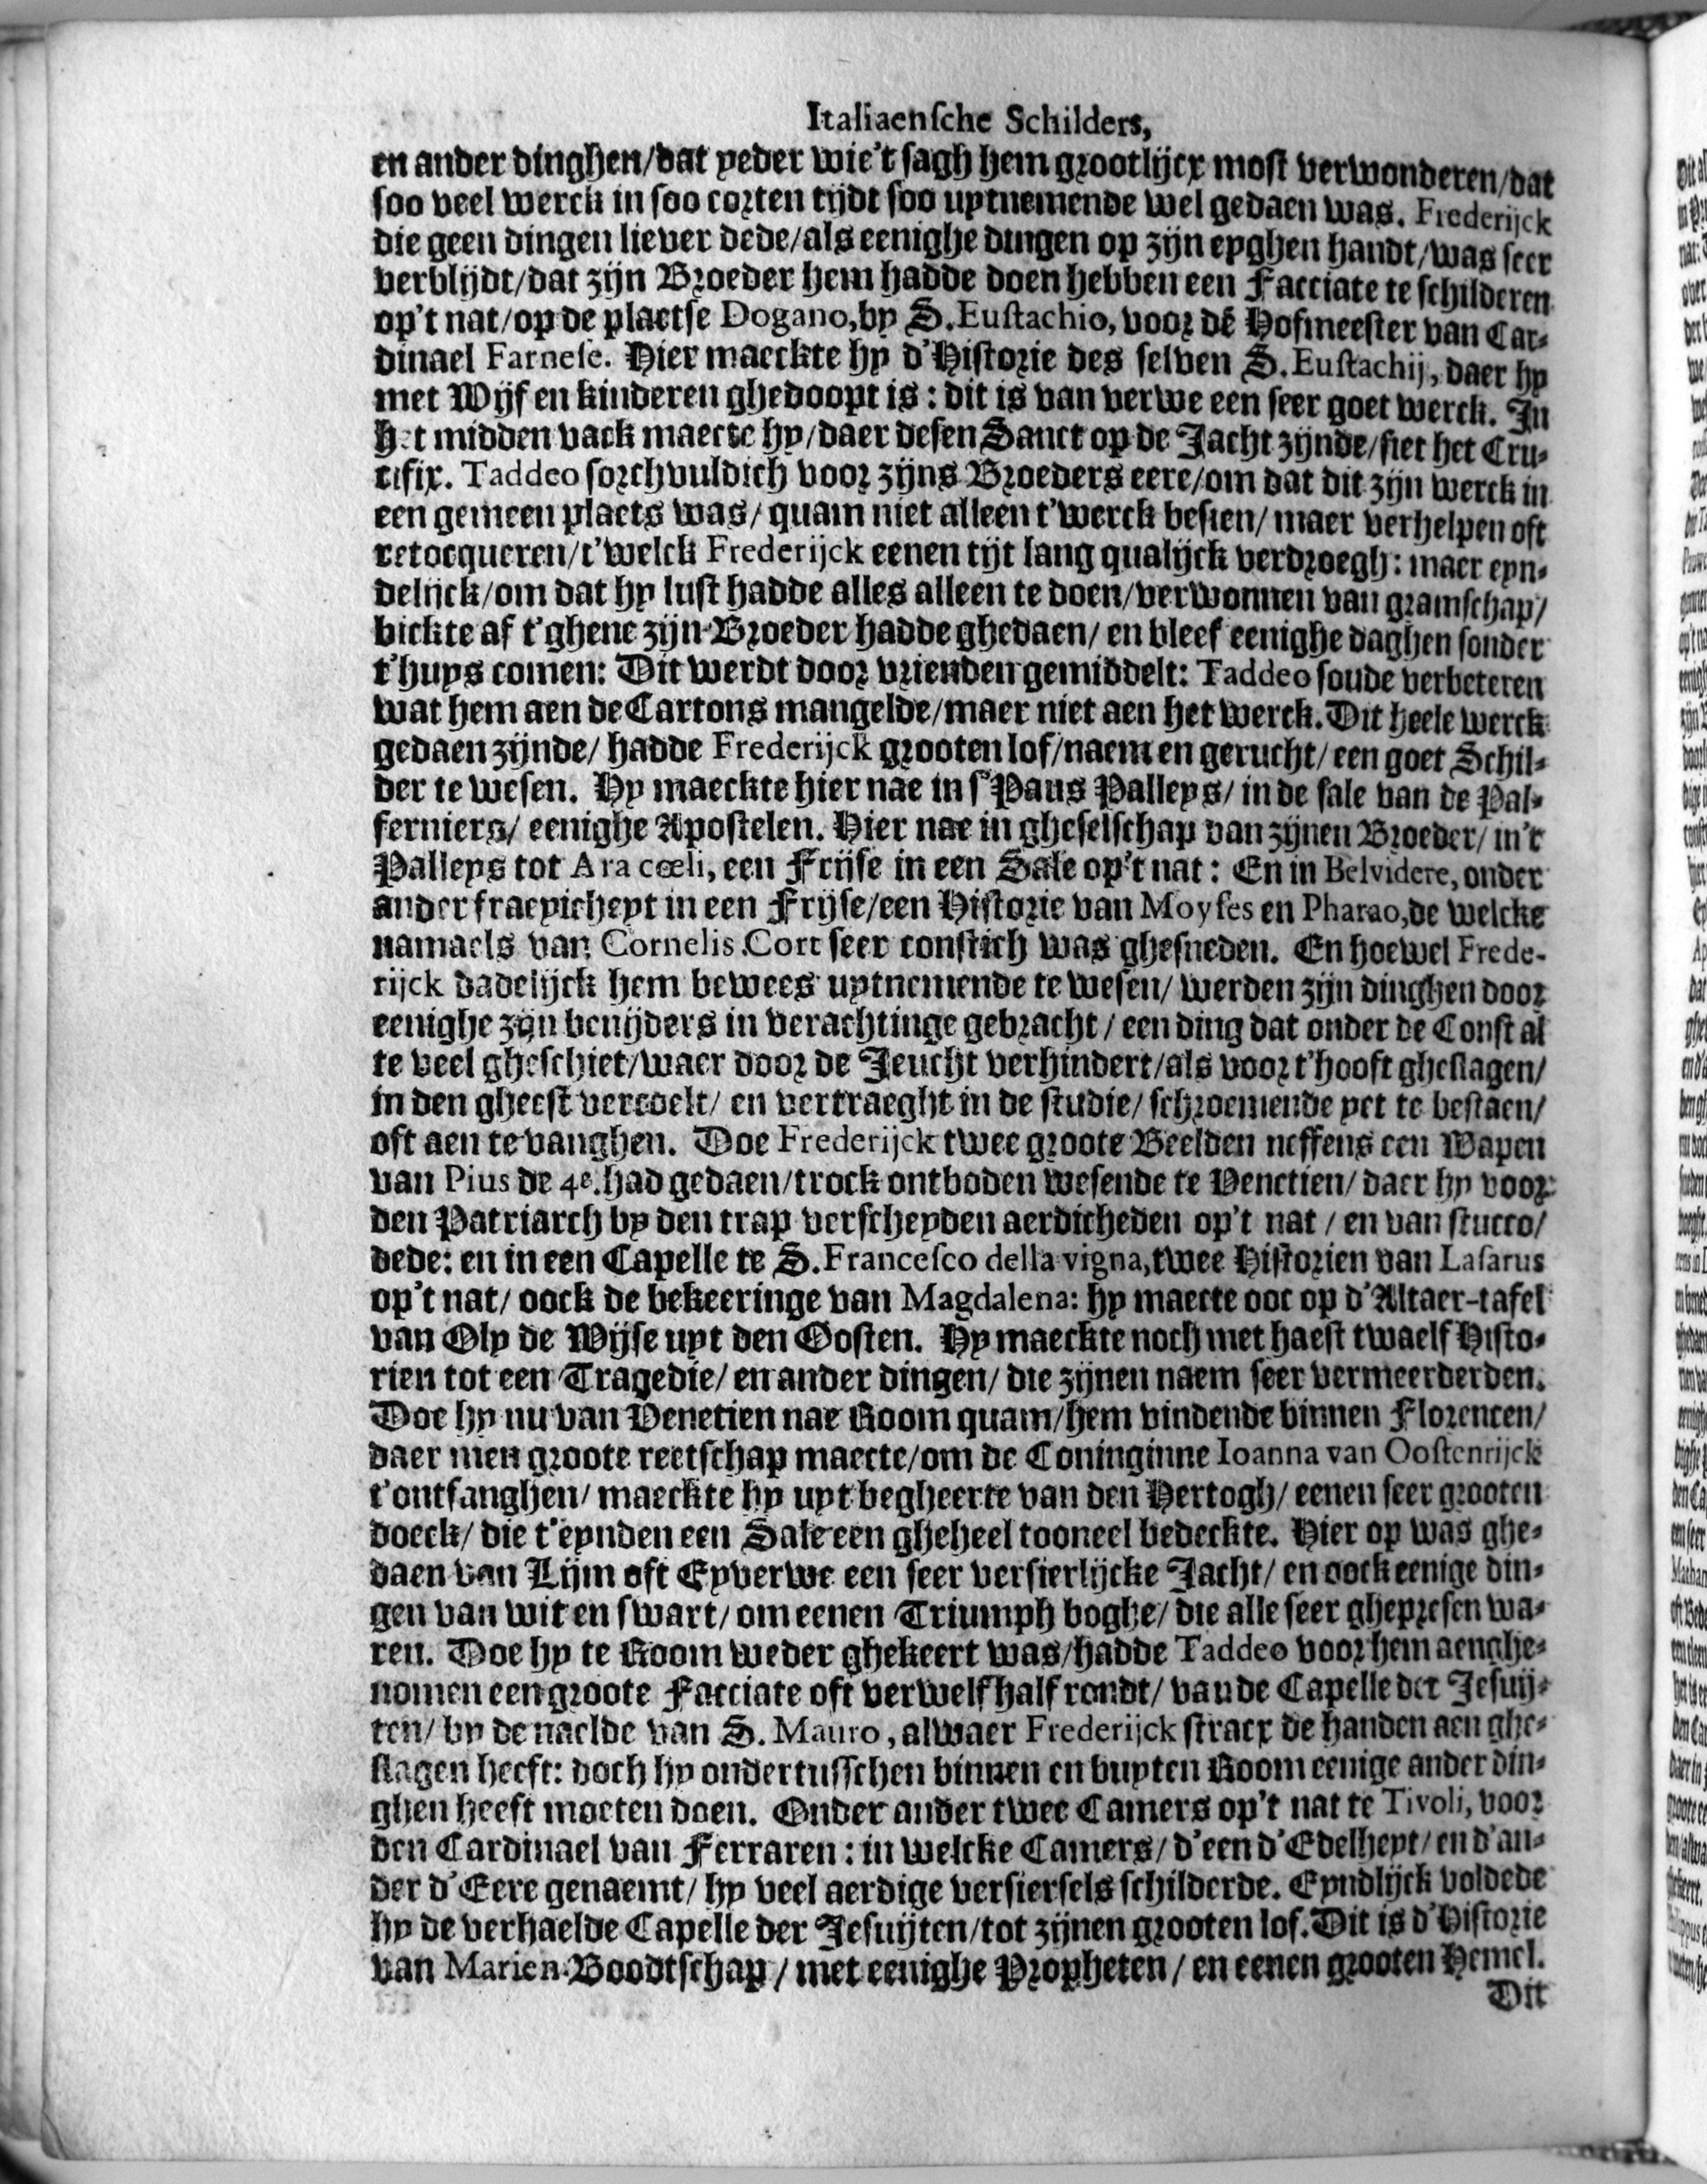 Italiaensche Schilders,
en ander dinghen/dat yeder wie't sagh hem grootlijcx most verwonderen/dat
soo veel werck in soo corten tijdt soo uytnemende wel gedaen was. Frederijck
die geen dingen liever dede/als eenighe dingen op zijn eyghen handt/was seer
verblijdt/dat zijn Broeder hem hadde doen hebben een Facciate te schilderen
op't nat/op de plaetse Dogano, by S. Eustachio, voor dē Hofmeester van Car-
dinael Farnese. Hier maeckte hy d'Historie des selven S. Eustachij, daer hy
met Wijf en kinderen ghedoopt is: dit is van verwe een seer goet werck. In
het midden vack maecte hy/daer desen Sanct op de Jacht zijnde/siet het Cru-
cifix. Taddeo sorchvuldich voor zijns Broeders eere/om dat dit zijn werck in
een gemeen plaets was/ quam niet alleen t'werck besien/ maer verhelpen oft
retocqueren/t'welck Frederijck eenen tijt lang qualijck verdroegh: maer eyn-
delijck/om dat hy lust hadde alles alleen te doen/verwonnen van gramschap/
bickte af t'ghene zijn Broeder hadde ghedaen/ en bleef eenighe daghen sonder
t'huys comen: Dit werdt door vrienden gemiddelt: Taddeo soude verbeteren
wat hem aen de Cartons mangelde/maer niet aen het werck. Dit heele werck
gedaen zijnde/ hadde Frederijck grooten lof/naem en gerucht/ een goet Schil-
der te wesen. Hy maeckte hier nae in s'Paus Palleys/ in de sale van de Pal-
ferniers/ eenighe Apostelen. Hier nae in gheselschap van zijnen Broeder/ in't
Palleys tot Ara cœli, een Frijse in een Sale op't nat: En in Belvidere, onder
ander fraeyicheyt in een Frijse/een Historie van Moyses en Pharao, de welcke
namaels van Cornelis Cort seer constich was ghesneden. En hoewel Frede-
rijck dadelijck hem bewees uytnemende te wesen/ werden zijn dinghen door
eenighe zijn benijders in verachtinge gebracht / een ding dat onder de Const al
te veel gheschiet/waer door de Jeucht verhindert/als voor t'hooft gheslagen/
in den gheest vercoelt/ en vertraeght in de studie/ schroemende yet te bestaen/
oft aen te vanghen. Doe Frederijck twee groote Beelden neffens een Wapen
van Pius de 4e. had gedaen/trock ontboden wesende te Venetien/ daer hy voor
den Patriarch by den trap verscheyden aerdicheden op't nat / en van stucco/
dede: en in een Capelle te S. Francesco della vigna, twee Historien van Lasarus
op't nat/ oock de bekeeringe van Magdalena: hy maecte ooc op d'Altaer-tafel
van Oly de Wijse uyt den Oosten. Hy maeckte noch met haest twaelf Histo-
rien tot een Tragedie/ en ander dingen/ die zijnen naem seer vermeerderden.
Doe hy nu van Venetien nae Room quam/hem vindende binnen Florencen/
daer men groote reetschap maecte/om de Coninginne Ioanna van Oostenrijck
t'ontfanghen/ maeckte hy uyt begheerte van den Hertogh/ eenen seer grooten
doeck/ die t'eynden een Sale een gheheel tooneel bedeckte. Hier op was ghe-
daen van Lijm oft Eyverwe een seer versierlijcke Jacht/ en oock eenige din-
gen van wit en swart/ om eenen Triumph boghe/ die alle seer ghepresen wa-
ren. Doe hy te Room weder ghekeert was/hadde Taddeo voor hem aenghe-
nomen een groote Facciate oft verwelf half rondt/ van de Capelle der Jesuij-
ten/ by de naelde van S. Mauro, alwaer Frederijck stracx de handen aen ghe-
slagen heeft: doch hy ondertusschen binnen en buyten Room eenige ander din-
ghen heeft moeten doen. Onder ander twee Camers op't nat te Tivoli, voor
den Cardinael van Ferraren: in welcke Camers/ d'een d'Edelheyt/ en d'an-
der d'Eere genaemt/ hy veel aerdige versiersels schilderde. Eyndlijck voldede
hy de verhaelde Capelle der Jesuijten/tot zijnen grooten lof. Dit is d'Historie
van Marien Boodtschap/ met eenighe Propheten/ en eenen grooten Hemel.
Dit